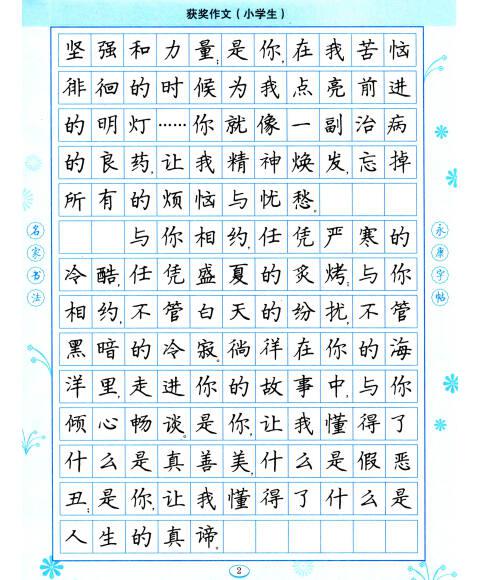 获奖作文(小学生)
坚强和力量;是你,在我苦恼
徘徊的时候为我点亮前进
的明灯……你就像一副治病
的良药,让我精神焕发,忘掉
所有的烦恼与忧愁。
与你相约,任凭严寒的
冷酷,任凭盛夏的炙烤;与你
相约,不管白天的纷扰,不管
黑暗的冷寂,徜徉在你的海
洋里,走进你的故事中,与你
倾心畅谈。是你,让我懂得了
什么是真善美,什么是假恶
丑;是你,让我懂得了什么是
人生的真谛。
名家书法
永康字帖
2